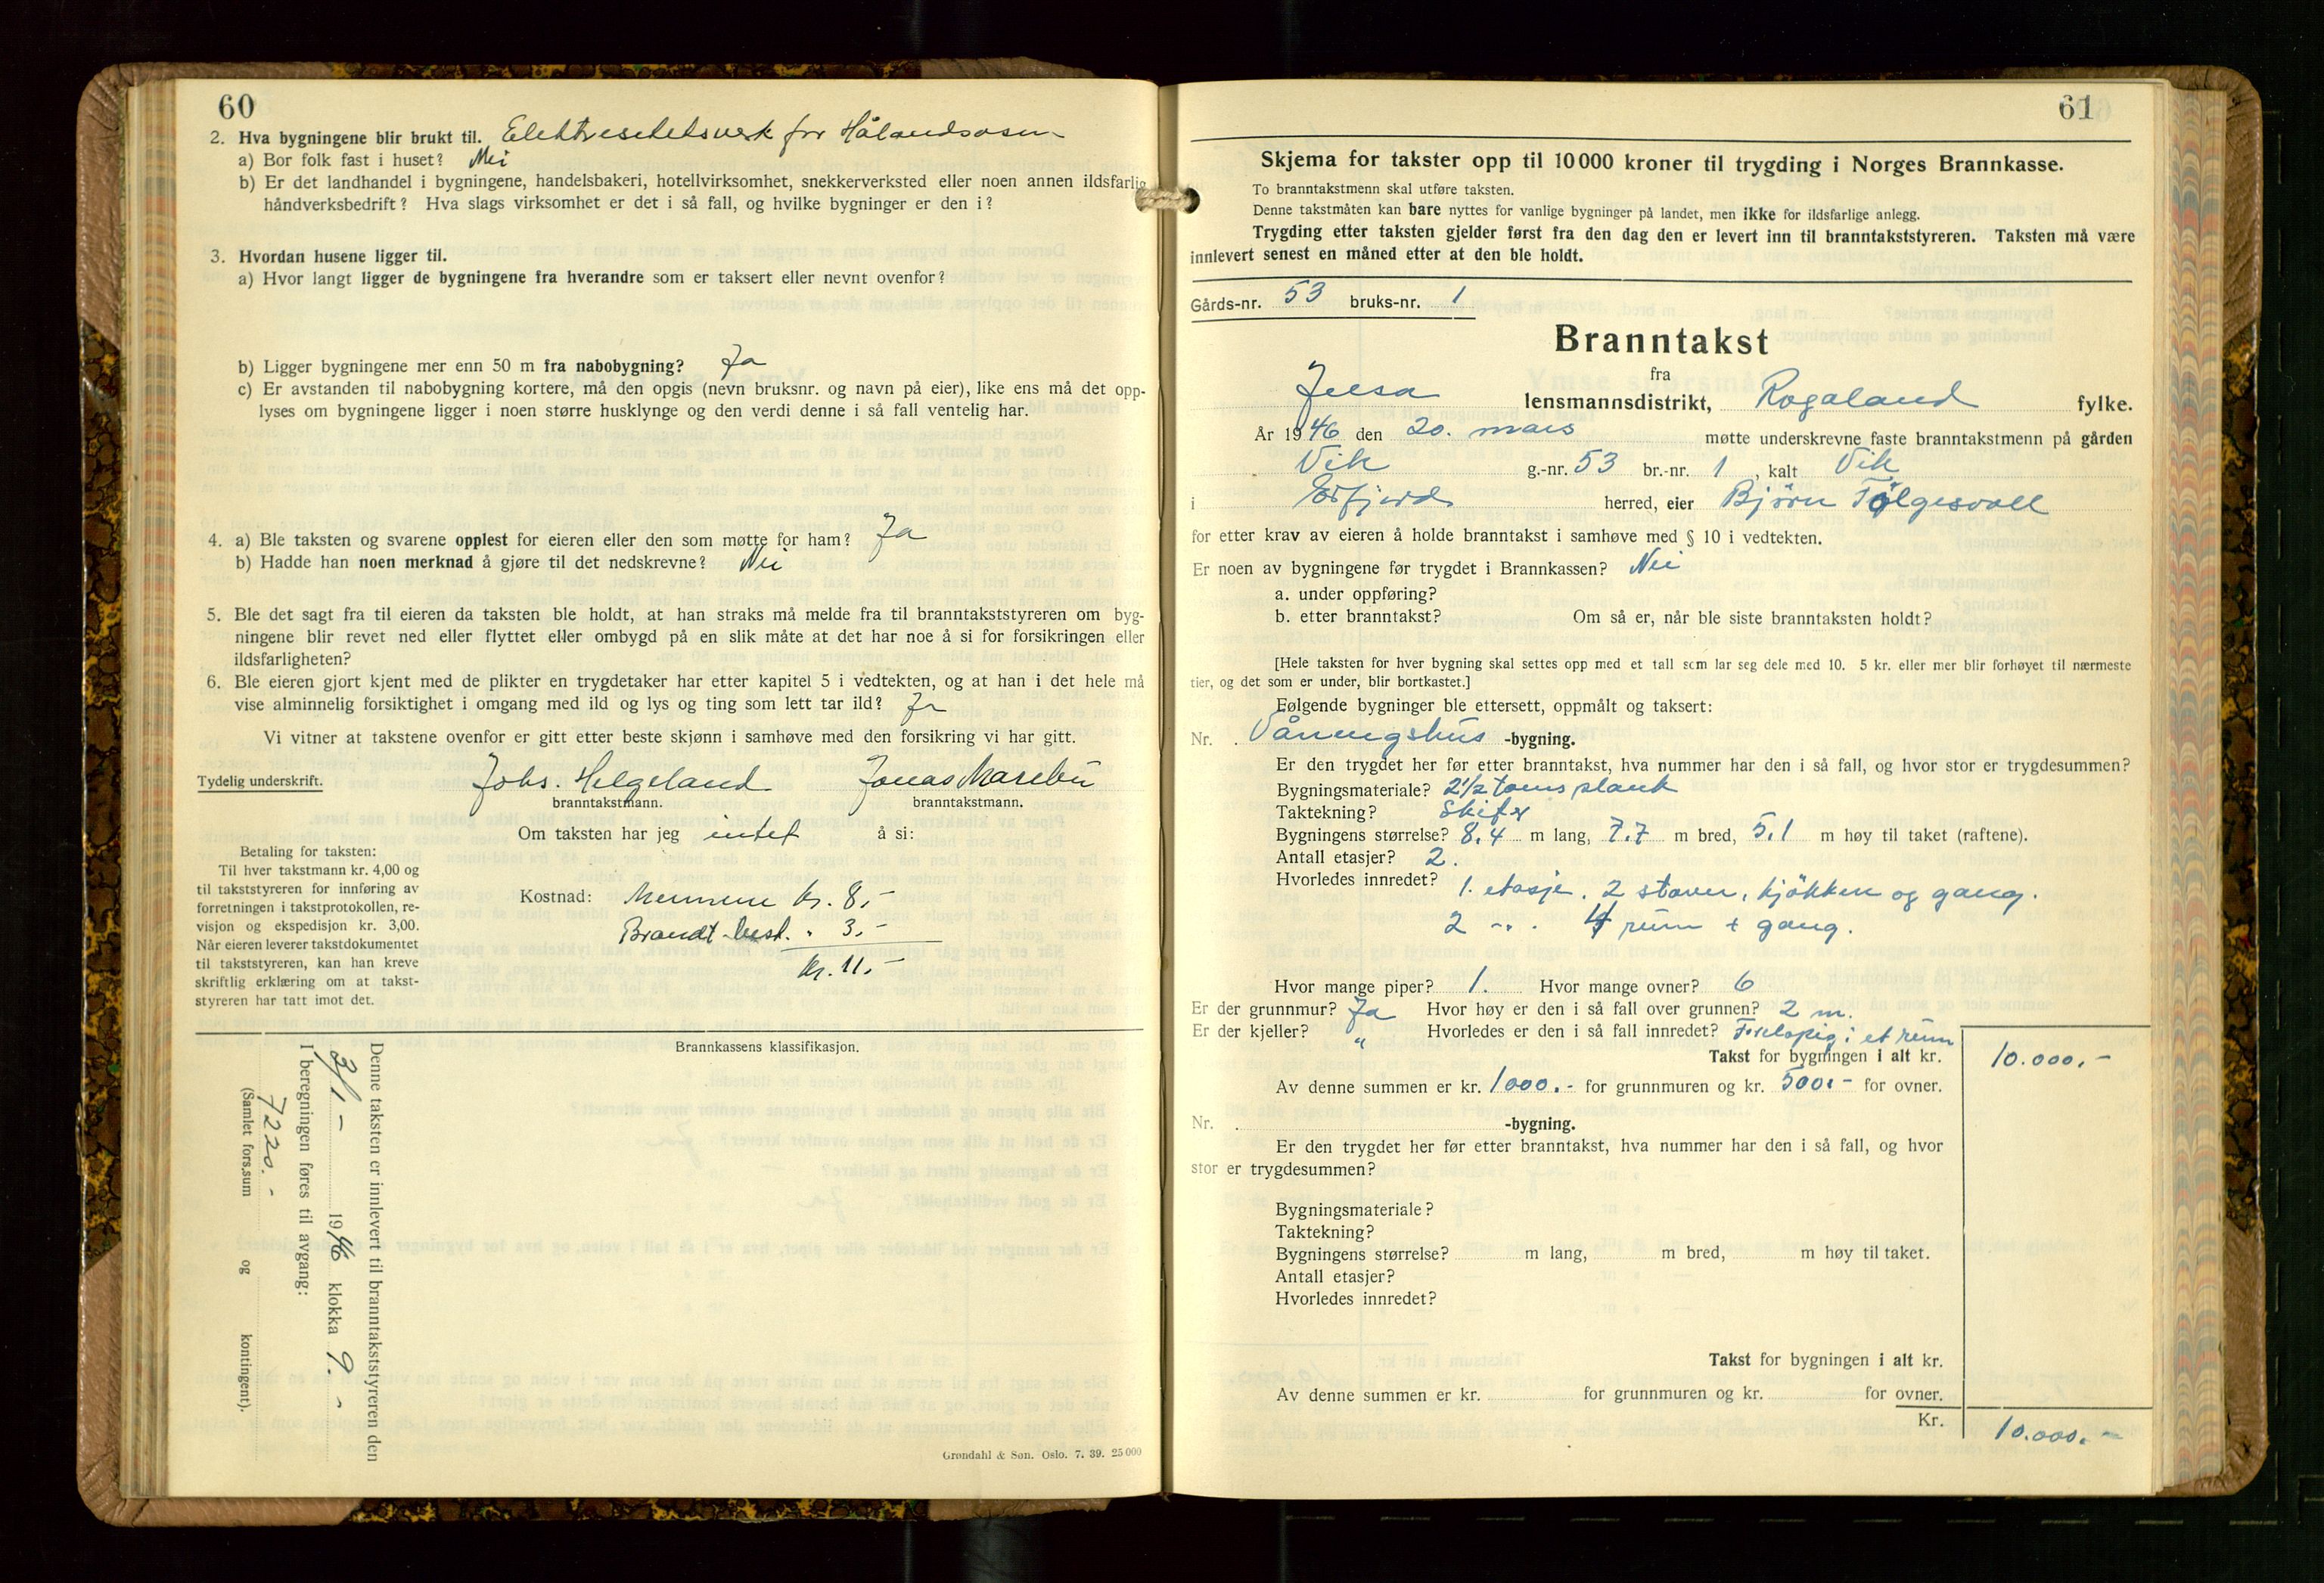 60
2. Hva bygningene blir brukt til. Elektresitetsverk for Hålandsosen
a) Bor folk fast i huset? Nei
b) Er det landhandel i bygningene, handelsbakeri, hotellvirksomhet, snekkerverksted eller noen annen ildsfarlig
håndverksbedrift? Hva slags virksomhet er det i så fall, og hvilke bygninger er den i?
3. Hvordan husene ligger til.
a) Hvor langt ligger de bygningene fra hverandre som er taksert eller nevnt ovenfor?
b) Ligger bygningene mer enn 50 m fra nabobygning? Ja
c) Er avstanden til nabobygning kortere, må den opgis (nevn bruksnr. og navn på eier), like ens må det opp-
lyses om bygningene ligger i noen større husklynge og den verdi denne i så fall ventelig har.
4. a) Ble taksten og svarene opplest for eieren eller den som møtte for ham? Ja
b) Hadde han noen merknad å gjøre til det nedskrevne? Nei
5. Ble det sagt fra til eieren da taksten ble holdt, at han straks må melde fra til branntakststyreren om byg-
ningene blir revet ned eller flyttet eller ombygd på en slik måte at det har noe å si for forsikringen eller
ildsfarligheten?
6. Ble eieren gjort kjent med de plikter en trygdetaker har etter kapitel 5 i vedtekten, og at han i det hele må
vise alminnelig forsiktighet i omgang med ild og lys og ting som lett tar ild? Ja
Vi vitner at takstene ovenfor er gitt etter beste skjønn i samhøve med den forsikring vi har gitt.
Tydelig underskrift. Johs. Helgeland Jonas Marebu
branntakstmann. branntakstmann.
Om taksten har jeg intet å si:
Betaling for taksten:
Til hver takstmann kr. 4,00 og
til takststyreren for innføring av
forretningen i takstprotokollen, re-
visjon og ekspedisjon kr. 3,00.
Når eieren leverer takstdokumentet
til takststyreren, kan han kreve
skriftlig erklæring om at takst-
styreren har tatt imot det.
Kostnad: Mennene kr. 8,-
Brandt best. " 3,-
kr. 11,-
Brannkassens klassifikasjon.
Denne taksten er innlevert til branntakststyreren den
2/1 - 1946 klokka 9. -
I beregningen føres til avgang:
7220.-
(Samlet fors.sum og kontingent).
Grøndahl & Søn. Oslo. 7. 39. 25 000
61
Skjema for takster opp til 10 000 kroner til trygding i Norges Brannkasse.
To branntakstmenn skal utføre taksten.
Denne takstmåten kan bare nyttes for vanlige bygninger på landet, men ikke for ildsfarlige anlegg.
Trygding etter taksten gjelder først fra den dag den er levert inn til branntakststyreren. Taksten må være
innlevert senest en måned etter at den ble holdt.
Gårds-nr. 53 bruks-nr. 1
Branntakst
fra
Jelsa lensmannsdistrikt, Rogaland fylke.
År 1946 den 20. mars møtte underskrevne faste branntakstmenn på gården
Vik g.-nr. 53 br.-nr. 1, kalt Vik
i Erfjord herred, eier Bjørn Følgesvoll
for etter krav av eieren å holde branntakst i samhøve med § 10 i vedtekten.
Er noen av bygningene før trygdet i Brannkassen? Nei
a. under oppføring?
b. etter branntakst? Om så er, når ble siste branntaksten holdt?
[Hele taksten for hver bygning skal settes opp med et tall som lar seg dele med 10. 5 kr. eller mer blir forhøyet til nærmeste
tier, og det som er under, blir bortkastet.]
Følgende bygninger ble ettersett, oppmålt og taksert:
Nr. Våningshus -bygning.
Er den trygdet her før etter branntakst, hva nummer har den i så fall, og hvor stor er trygdesummen?
Bygningsmateriale? 2 1/2 toms plank
Taktekning? Skifer
Bygningens størrelse? 8.4 m lang, 7.7 m bred, 5.1 m høy til taket (raftene).
Antall etasjer? 2.
Hvorledes innredet? 1. etasje. 2 stover, kjökken og gang.
2 -"- . 4 rum + gang.
Hvor mange piper? 1. Hvor mange ovner? 6
Er der grunnmur? Ja Hvor høy er den i så fall over grunnen? 2 m.
Er der kjeller? " Hvorledes er den i så fall innredet? Foreløpig i et rum
Takst for bygningen i alt kr. 10.000,-
Av denne summen er kr. 1000.- for grunnmuren og kr. 500.- for ovner.
Nr. -bygning.
Er den trygdet her før etter branntakst, hva nummer har den i så fall, og hvor
stor er trygdesummen?
Bygningsmateriale?
Taktekning?
Bygningens størrelse? m lang, m bred, m høy til taket.
Antall etasjer?
Hvorledes innredet?
Takst for bygningen i alt kr.
Av denne summen er kr. for grunnmuren og kr. for ovner.
Kr. 10.000.-